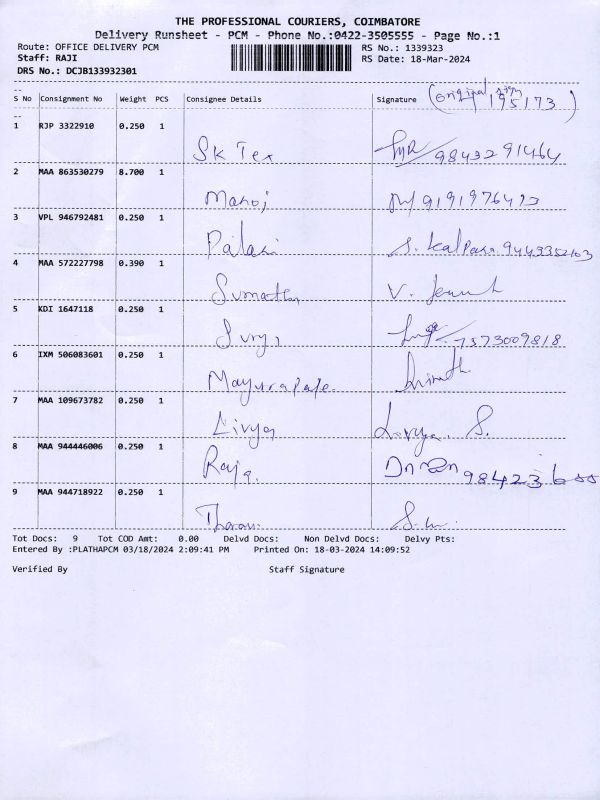 THE PROFESSIONAL COURIERS, COIMBATORE
Delivery Runsheet - PCM - Phone No.:0422-3505555 - Page No.:1
Route: OFFICE DELIVERY PCM
RS No.: 1339323
Staff: RAJI
RS Date: 18-Mar-2024
DRS No.: DCJB133932301
S No Consignment No Weight PCS Consignee Details Signature (original sign 195173)
1 RJP 3322910 0.250 1
SK Tex 9843291464
2 MAA 863530279 8.700 1
Manoj
3 VPL 946792481 0.250 1
Palani S. Kalpana 9449352103
4 MAA 572227798 0.390 1
Sumathi V.
5 KDI 1647118 0.250 1
Surya 7373009818
6 IXM 506083601 0.250 1
7 MAA 109673782 0.250 1
Livya Livya. S.
8 MAA 944446006 0.250 1
Raja.
9 MAA 944718922 0.250 1
Tot Docs: 9 Tot COD Amt: 0.00 Delvd Docs: Non Delvd Docs: Delvy Pts:
Entered By :PLATHAPCM 03/18/2024 2:09:41 PM Printed On: 18-03-2024 14:09:52
Verified By Staff Signature